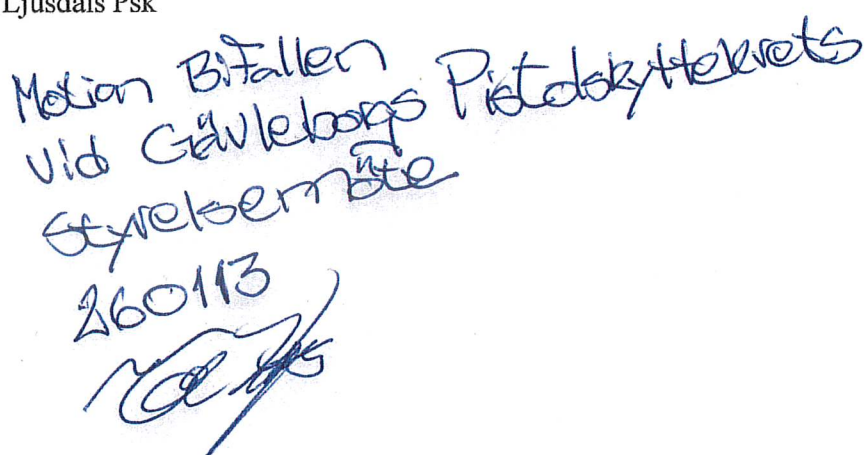 Ljusdals Psk
Motion Bifallen
vid Gävleborgs Pistolskyttekrets
Styrelsemöte
260113